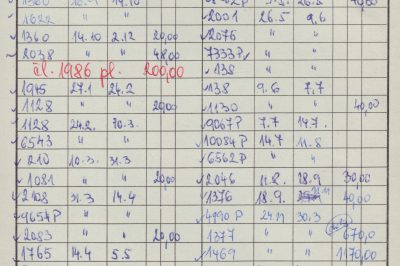 1360 16.9 14.10
1622 " "
1360 14.10 2.12 20,00
2038 " " 48,00
čl. 1986 pl. 200,00
1945 27.1 24.2
1128 " " 20,00
1128 24.2. 10.3.
6543 " "
210 10.3. 31.3
1081 " " 20,00
2108 31.3 14.4
9654P " "
2083 " " 20,00
1765 14.4 5.5
2001 26.5 9.6
2076 " "
7333P " "
138 " "
138 9.6 7.7
1130 " " 40,00
9067P 7.7 14.7.
10084P 14.7 11.8
6562P " "
2046 11.8. 18.9 30,00
1376 18.9. 40,00
4990P 24.11 30.3
1377 " " 670,0
1469 " " 1170,00